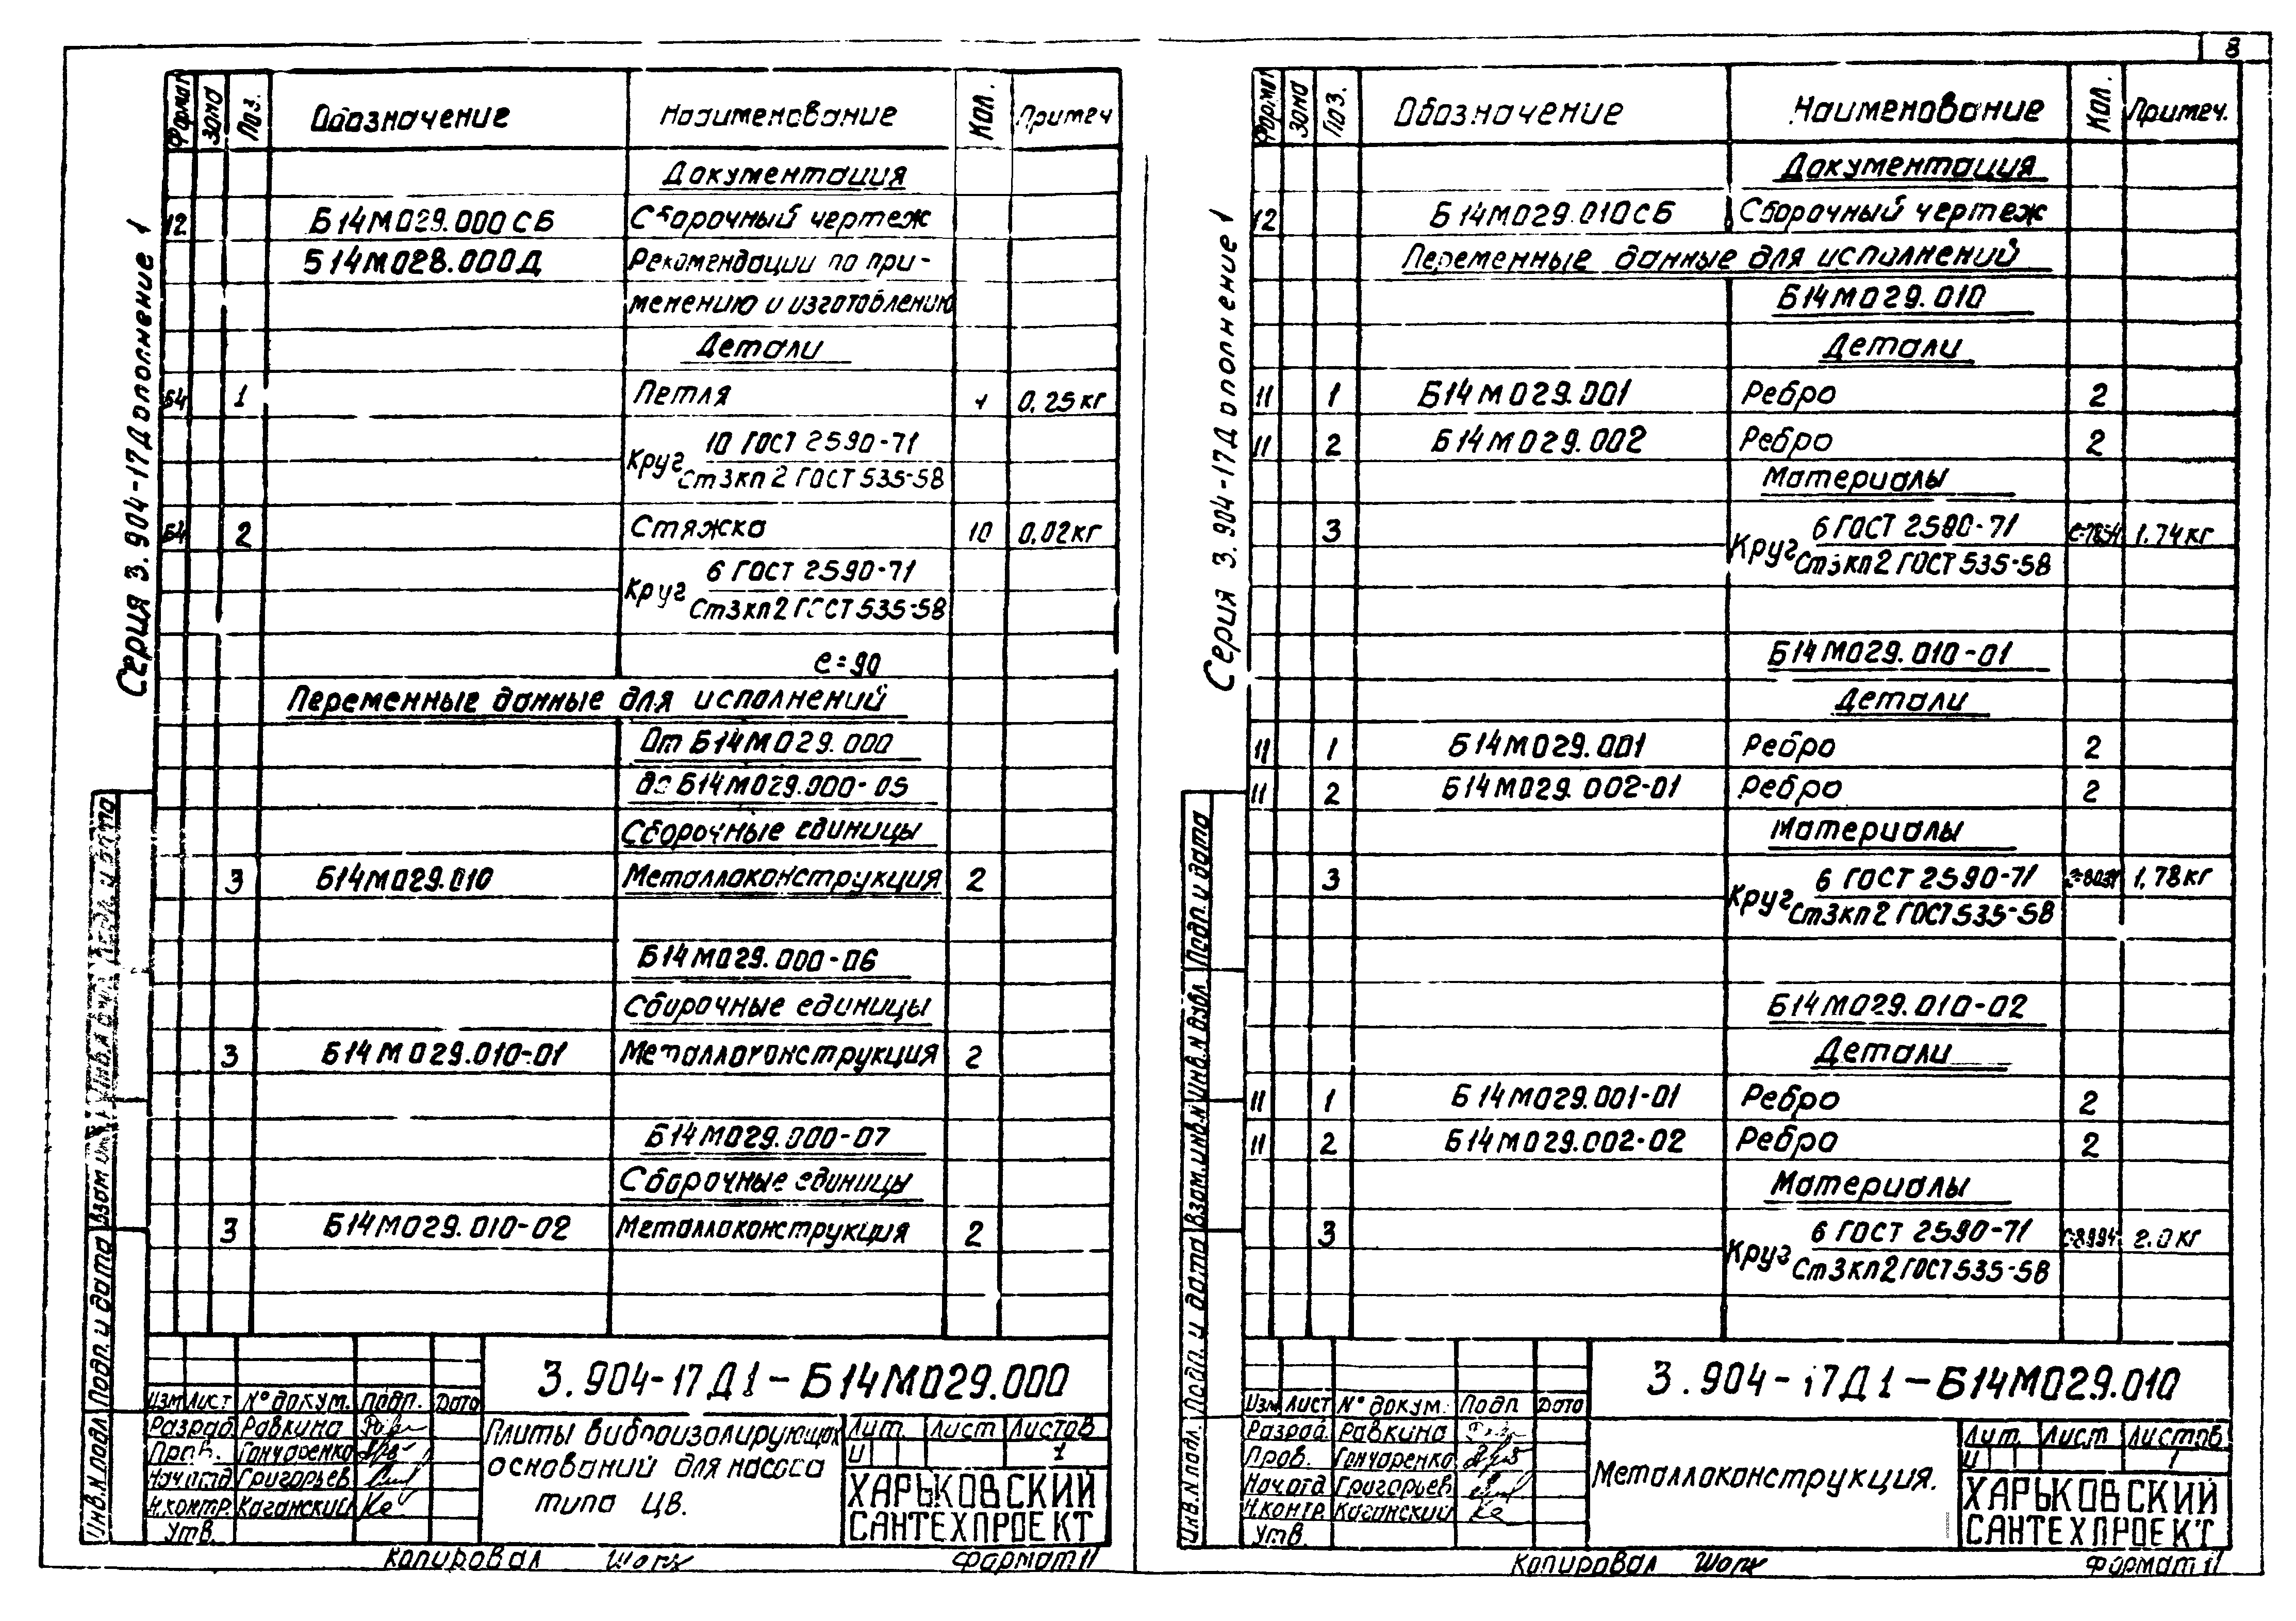 8
Серия 3.904-17 Дополнение 1
Формат Зона Поз. Обозначение Наименование Кол. Примеч
Документация
12 Б14М029.000СБ Сборочный чертеж
Б14М028.000Д Рекомендации по при-
менению и изготовлению
Детали
Б4 1 Петля 4 0,25кг
Круг 10 ГОСТ 2590-71
Ст3кп2 ГОСТ 535-58
Б4 2 Стяжка 10 0,02кг
Круг 6 ГОСТ 2590-71
Ст3кп2 ГОСТ 535-58
ℓ=90
Переменные данные для исполнений
От Б14М029.000
до Б14М029.000-05
Сборочные единицы
3 Б14М029.010 Металлоконструкция 2
Б14М029.000-06
Сборочные единицы
3 Б14М029.010-01 Металлоконструкция 2
Б14М029.000-07
Сборочные единицы
3 Б14М029.010-02 Металлоконструкция 2
Инв.N подл. Подп. и дата Взам.
3.904-17Д1-Б14М029.000
Изм Лист N° докум. Подп. Дата
Разраб Равкина
Пров. Гончаренко
Нач.отд Григорьев
Н.контр. Каганский
Утв.
Плиты виброизолирующих
оснований для насоса
типа ЦВ.
Лит. Лист Листов
И 1
ХАРЬКОВСКИЙ
САНТЕХПРОЕКТ
Копировал Формат 11
Серия 3.904-17 Дополнение 1
Формат Зона Поз. Обозначение Наименование Кол. Примеч.
Документация
12 Б14М029.010СБ Сборочный чертеж
Переменные данные для исполнений
Б14М029.010
Детали
11 1 Б14М029.001 Ребро 2
11 2 Б14М029.002 Ребро 2
Материалы
3 Круг 6 ГОСТ 2590-71 1.74кг
Ст3кп2 ГОСТ 535-58
Б14М029.010-01
Детали
11 1 Б14М029.001 Ребро 2
11 2 Б14М029.002-01 Ребро 2
Материалы
3 Круг 6 ГОСТ 2590-71 1,78кг
Ст3кп2 ГОСТ 535-58
Б14М029.010-02
Детали
11 1 Б14М029.001-01 Ребро 2
11 2 Б14М029.002-02 Ребро 2
Материалы
3 Круг 6 ГОСТ 2590-71 ℓ=8994 2.0кг
Ст3кп2 ГОСТ 535-58
Инв.N подл. Подп. и дата Взам.инв.N Инв.N дубл. Подп. и дата
3.904-17Д1-Б14М029.010
Изм Лист N° докум. Подп Дата
Разраб Равкина
Пров. Гончаренко
Нач.отд Григорьев
Н.контр. Каганский
Утв.
Металлоконструкция.
Лит. Лист Листов
И 1
ХАРЬКОВСКИЙ
САНТЕХПРОЕКТ
Копировал Формат 11